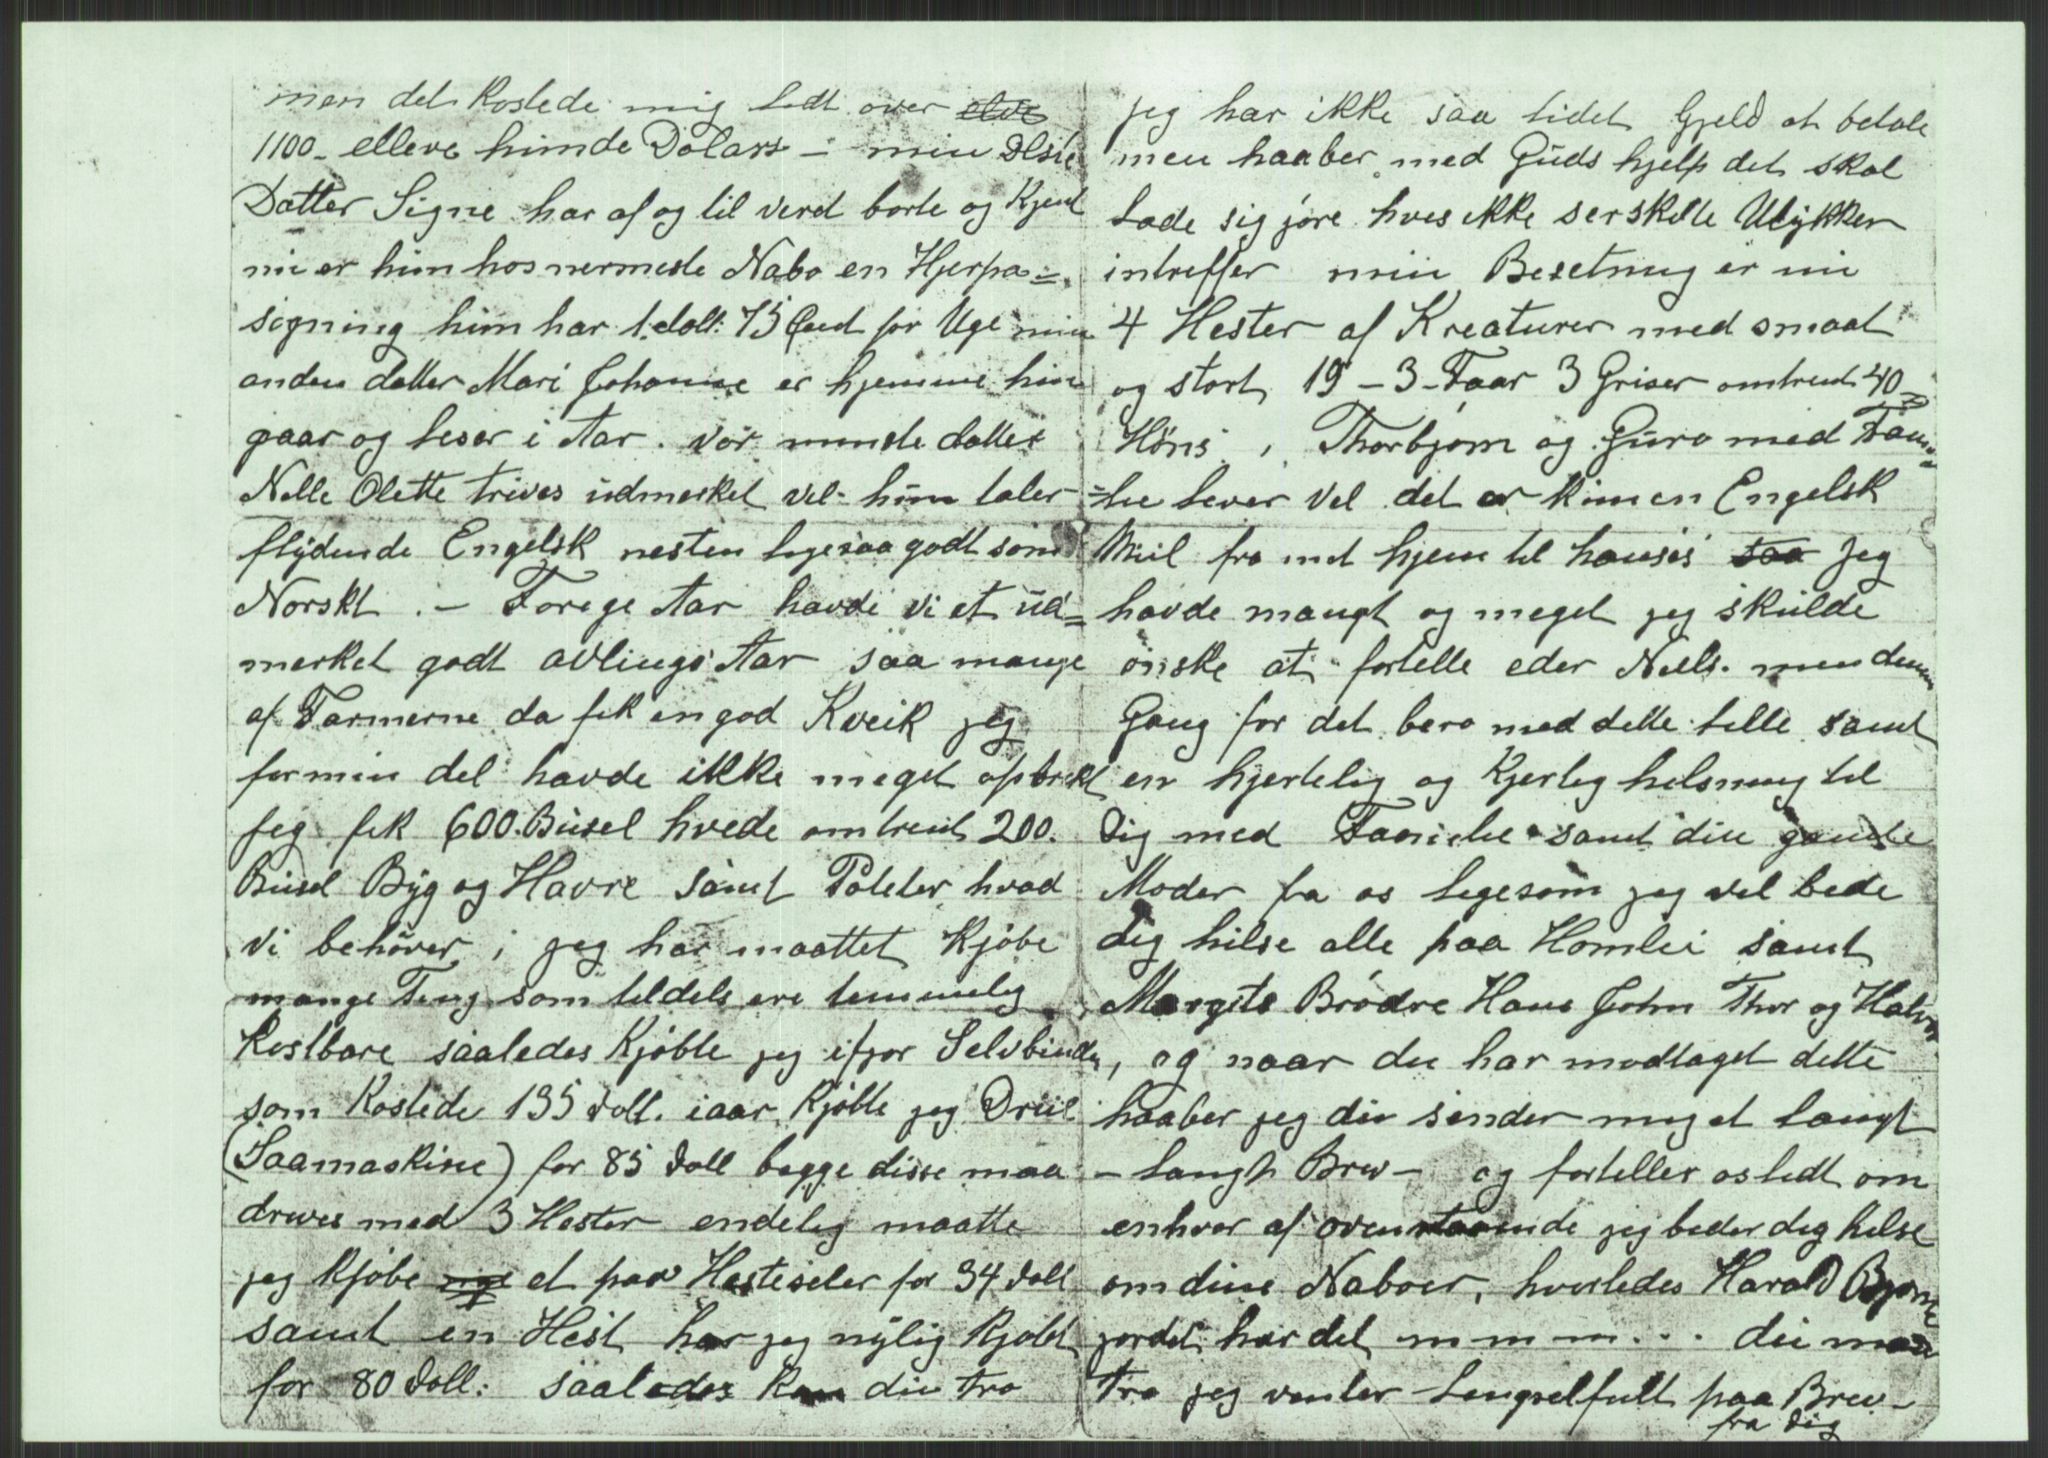 men det kostede mig lidt over elve
1100 - elleve hunde Dolars - min Elste
Datter Signe har af og til verd borte og kjent
nu er hun hos nermeste Nabo en Hjerpa=
signing hun har 1 doll: 75 Cent for Uge min
anden datter Mari Johanne er hjemme hun
gaar og leser i Aar. Vor minste datter
Nelle Olette trives üdmerket vel - hün taler
flydende Engelsk nesten ligesaa godt som
Norskt . - Forege Aar havde vi et üd=
merket godt avlings Aar saa mange
af Farmerne da fik en god Kveik jeg
for min del havde ikke meget opbrekt
jeg fik 600. Büsel hvede omtrent 200.
Büsel Byg og Havre samt Poteter hvad
vi behöver, jeg har maattet kjöbe
mange Ting som tildels ere temmelig
kostbare saaledes kjöbte jeg ifjor Selvbinder
som kostede 135 doll. iaar kjöbte jeg Dril
(Saamaskine) for 85 doll begge disse maa
drives med 3 Hester endelig maatte
jeg kjöbe mge et par Hesteseler for 34 doll
samt en Hest har jeg nylig kjöbt
for 80 doll: saaledes kan du tro
jeg har ikke saa lidet Gjeld at betale
men haaber med Guds hjelp det skal
lade sig jöre hves ikke serskelte Ulykker
intreffer min Besetning er nu
4 Hester af Kreaturer med smaat
og stort 19 - 3 - Faar 3 Griser omtrent 40
Höns, Thorbjorn og Guro med Fami=
=lie lever vel det er kun en Engelsk
Miil fra mit hjem til hanses saa jeg
havde mangt og meget jeg skulde
önske at fortelle eder Niels. men denne
Gang for det bero med dette lille samt
en hjertelig og kjerlig helsning til
Dig med Familie samt din gamle
Moder fra os ligesom jeg vel bede
dig hilse alle paa Homlei samt
Margits Brödre Hans John Thor og Halvor
, og naar du har modtaget dette
haaber jeg du sender mig et langt
- langt Brev - og forteller os lidt om
enhver af ovenstaaende jeg beder dig helse
om dine Naboer, hvorledes Harald Bjönn
jordet har det m m m ... du maa
tro jeg venter lengselfult paa Brev -
fra dig